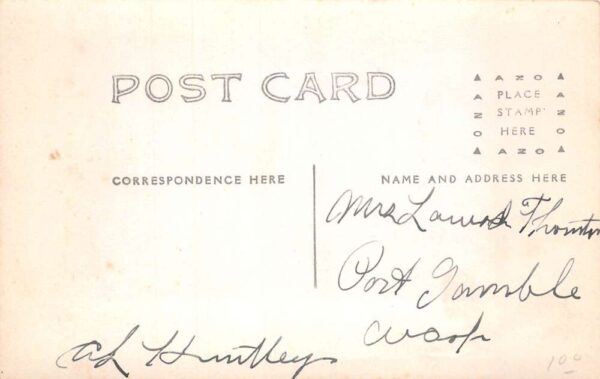 POST CARD
▲ AZO ▲
PLACE
STAMP
HERE
▲ AZO ▲
CORRESPONDENCE HERE
NAME AND ADDRESS HERE
Mrs
Port Gamble
Wash
Huntleys
10 00